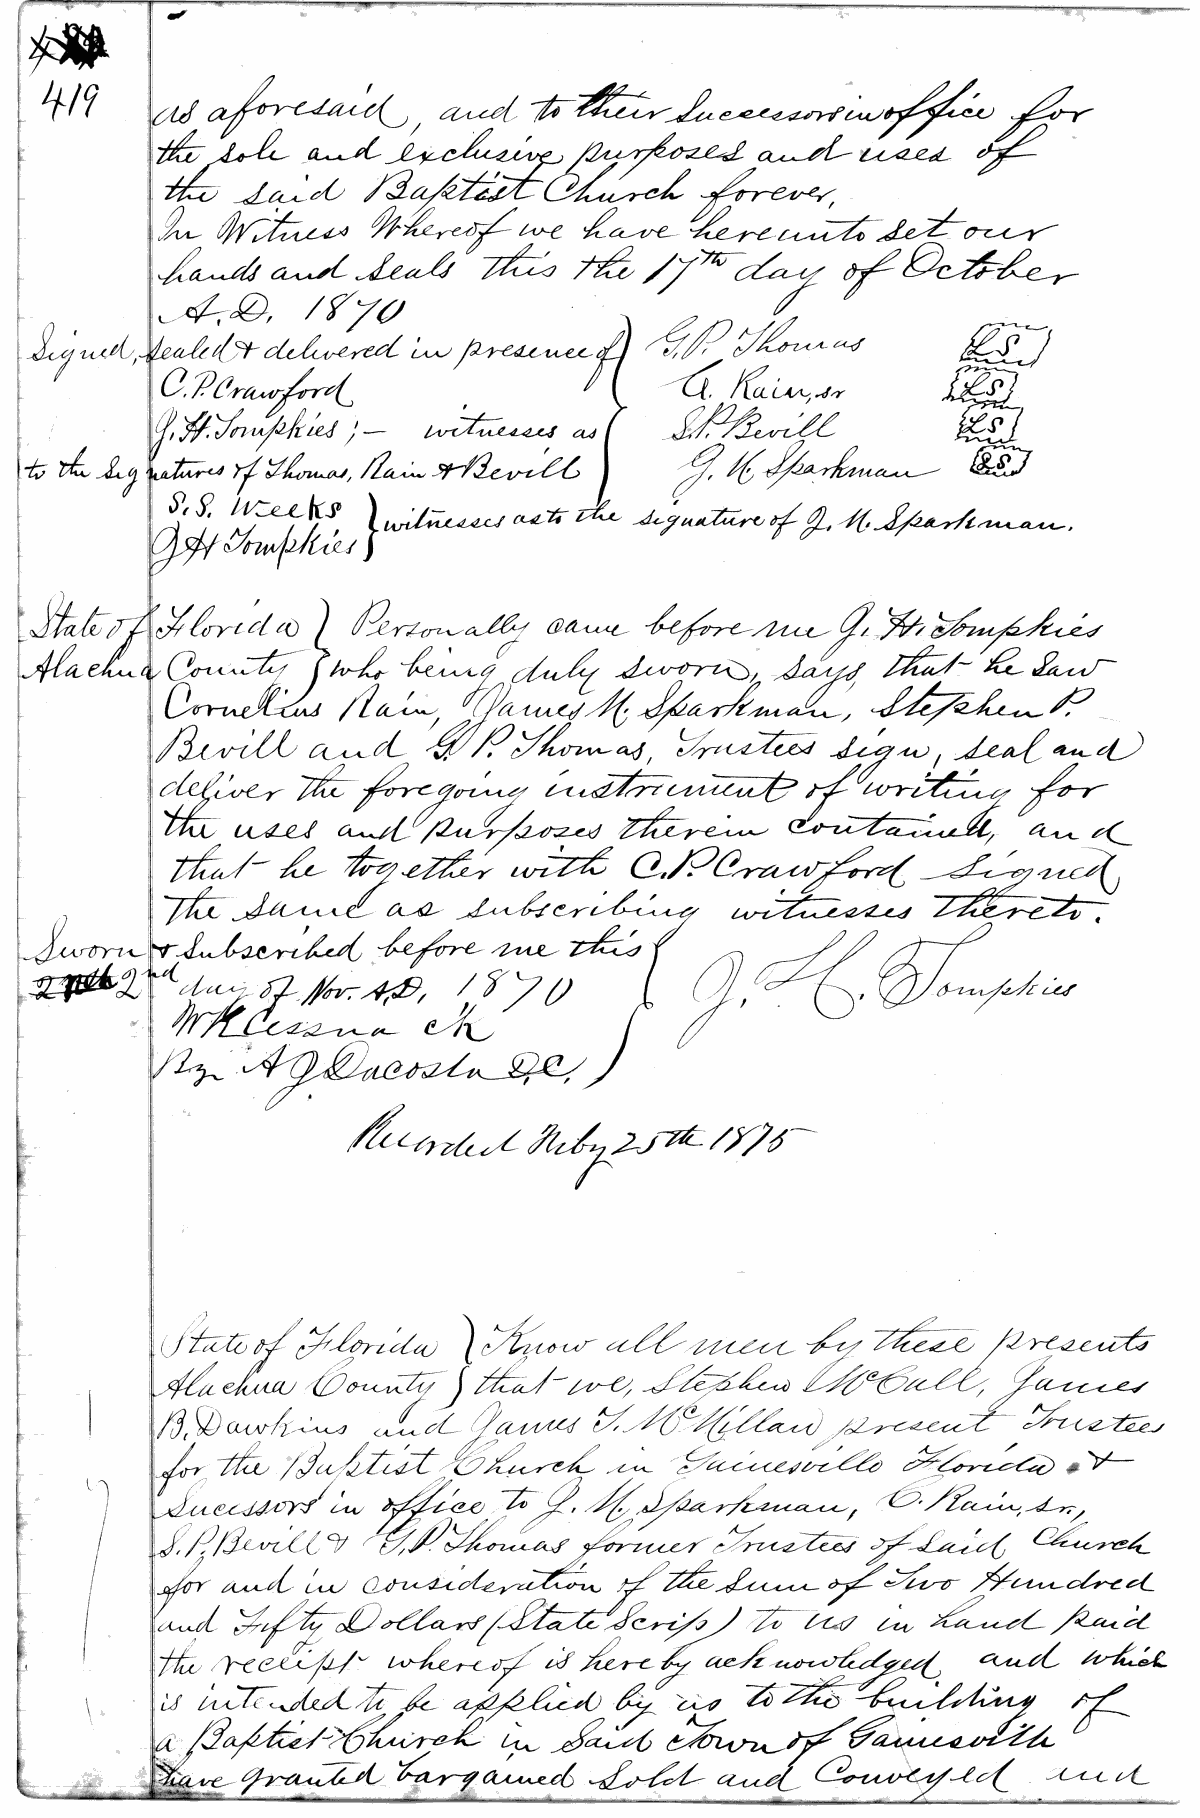 419
as aforesaid, and to their Successors in office for
the sole and exclusive purposes and uses of
the said Baptist Church forever,
In Witness Whereof we have hereunto set our
hands and seals this the 17th day of October
A.D. 1870
Signed, sealed & delivered in presence of } G.P. Thomas LS
C.P. Crawford C. Rain, sr LS
J. H. Tompkies; - witnesses as S.P. Bevill LS
to the Signatures of Thomas, Rain & Bevill J. M. Sparkman LS
S.S. Weeks } witnesses as to the signature of J. M. Sparkman.
J H Tompkies
State of Florida } Personally came before me J. H. Tompkies
Alachua County } who being duly sworn, says, that he saw
Cornelius Rain, James M. Sparkman, Stephen P.
Bevill and G. P. Thomas, Trustees sign, seal and
deliver the foregoing instrument of writing for
the uses and purposes therein contained, and
that he together with C.P. Crawford signed
the same as subscribing witnesses thereto.
Sworn & Subscribed before me this } J. H. Tompkies
2nd day of Nov. A.D. 1870
WK Cessna Clk
By A J Dacosta D.C.
Recorded Feby 25th 1875
State of Florida } Know all men by these presents
Alachua County } that we, Stephen McCall, James
B. Dawkins and James T. McMillan present Trustees
for the Baptist Church in Gainesville Florida &
Sucessors in office to J. M. Sparkman, C. Rain, sr.,
S.P. Bevill & G.P. Thomas former Trustees of said Church
for and in consideration of the sum of Two Hundred
and Fifty Dollars (State Scrip) to us in hand paid
the receipt whereof is hereby acknowledged and which
is intended to be applied by us to the building of
a Baptist Church in said Town of Gainesville
have granted bargained sold and Conveyed and